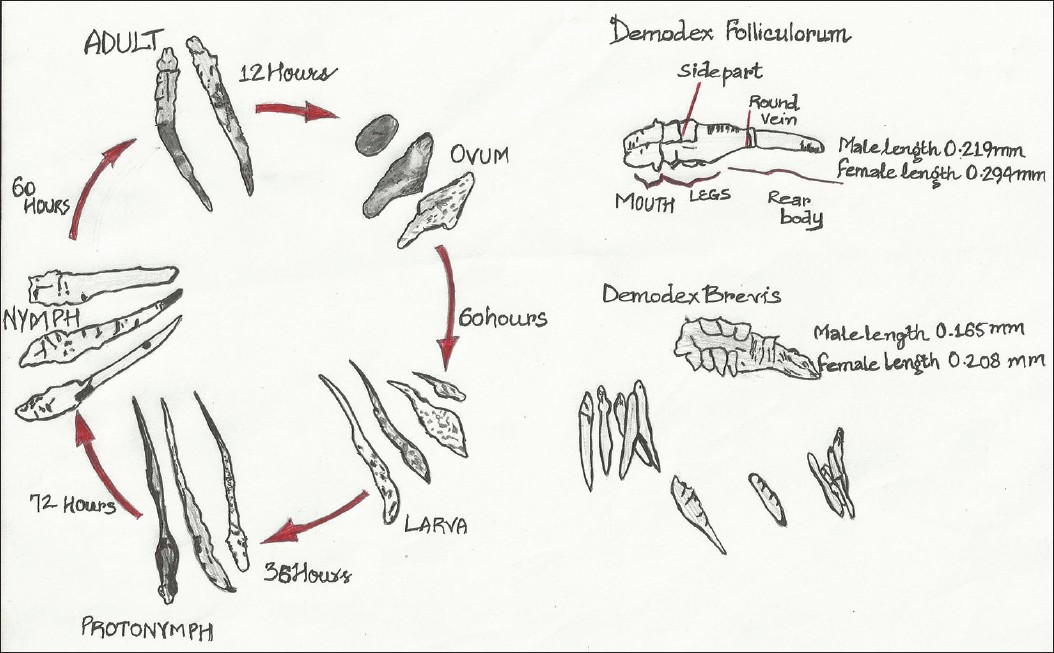 ADULT
12 Hours
OVUM
60 hours
LARVA
36 Hours
PROTONYMPH
72 Hours
NYMPH
60
HOURS
Demodex Folliculorum
Side part
Round
vein
Male length 0.219mm
Female length 0.294mm
MOUTH
LEGS
Rear
body
Demodex Brevis
Male length 0.165mm
female length 0.208 mm